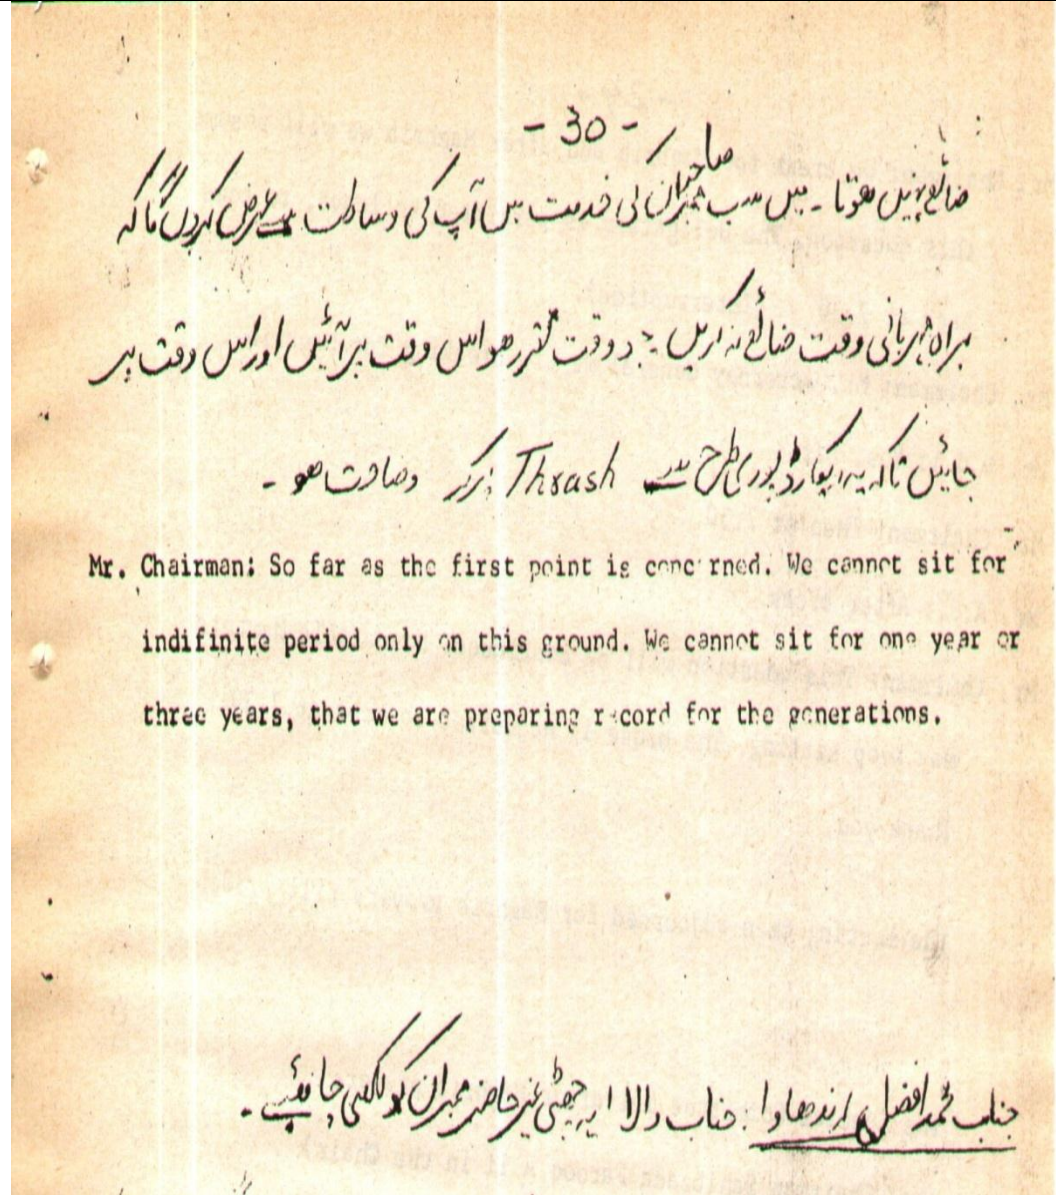 - 30 -
ضائع نہیں ھوتا۔ میں سب ممبران صاحبان کی خدمت میں آپ کی وساطت سے عرض کروں گا کہ
براہ مہربانی وقت ضائع نہ کریں۔ جو وقت مقرر ھو اس وقت پر آئیں اور اس وقت پر
جائیں تاکہ یہ ریکارڈ پوری طرح سے Thrash ہو کر وضاحت ھو۔
Mr. Chairman: So far as the first point is concerned. We cannot sit for
indifinite period only on this ground. We cannot sit for one year or
three years, that we are preparing record for the generations.
جناب محمد افضل رندھاوا: جناب والا! یہ چھٹی غیر حاضر ممبران کو لکھی جانی چاہئیے۔